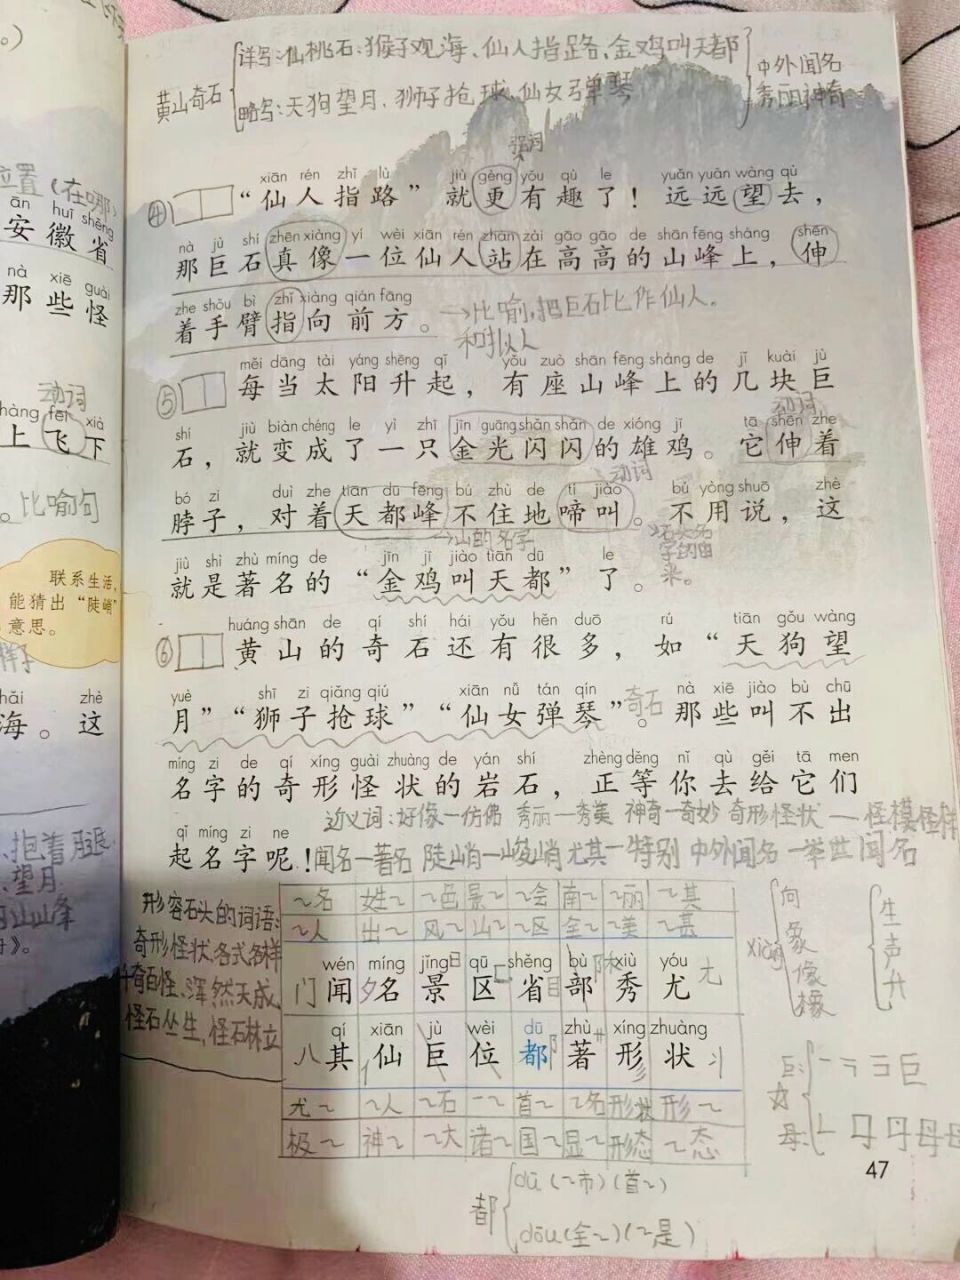 详写:仙桃石:猴子观海、仙人指路、金鸡叫天都
黄山奇石
略写:天狗望月、狮子抢球、仙女弹琴
中外闻名
秀丽神奇
位置(在哪)
ān huī shěng
安徽省
nà xiē guài
那些怪
动词
hàng fēi xià
上飞下
。比喻句
联系生活,
能猜出“陡峭”
意思。
样子
hǎi zhè
海。这
、抱着腿
望月
xiān rén zhǐ lù jiù gèng yǒu qù le yuǎn yuǎn wàng qù
④ “仙人指路”就更有趣了!远远望去,
nà jù shí zhēn xiàng yí wèi xiān rén zhàn zài gāo gāo de shān fēng shàng shēn
那巨石真像一位仙人站在高高的山峰上,伸
zhe shǒu bì zhǐ xiàng qián fāng
着手臂指向前方。
→比喻,把巨石比作仙人。
和拟人
měi dāng tài yáng shēng qǐ yǒu zuò shān fēng shàng de jǐ kuài jù
⑤ 每当太阳升起,有座山峰上的几块巨
动词
shí jiù biàn chéng le yì zhī jīn guāng shǎn shǎn de xióng jī tā shēn zhe
石,就变成了一只金光闪闪的雄鸡。它伸着
动词
bó zi duì zhe tiān dū fēng bú zhù de tí jiào bú yòng shuō zhè
脖子,对着天都峰不住地啼叫。不用说,这
→山的名字
石头名
字的由
来。
jiù shì zhù míng de jīn jī jiào tiān dū le
就是著名的“金鸡叫天都”了。
huáng shān de qí shí hái yǒu hěn duō rú tiān gǒu wàng
⑥ 黄山的奇石还有很多,如“天狗望
yuè shī zi qiǎng qiú xiān nǚ tán qín nà xiē jiào bù chū
月”“狮子抢球”“仙女弹琴”。那些叫不出
奇石
míng zi de qí xíng guài zhuàng de yán shí zhèng děng nǐ qù gěi tā men
名字的奇形怪状的岩石,正等你去给它们
近义词:好像—仿佛 秀丽—秀美 神奇—奇妙 奇形怪状—怪模怪样
qǐ míng zi ne
起名字呢!
闻名—著名 陡峭—峻峭 尤其—特别 中外闻名—举世闻名
形容石头的词语:
奇形怪状、各式各样
千奇百怪、浑然天成
怪石丛生、怪石林立
~名 姓~ ~色景~ ~会 南~ ~丽 ~其
~人 出~ 风~ 山~ ~区 全~ ~美 ~甚
wén míng jǐng qū shěng bù xiù yóu
门闻 夕名 景 区 省 部 秀 尤
qí xiān jù wèi dū zhù xíng zhuàng
八其 仙 巨 位 都 著 形 状
尤~ ~人 ~石 一~ 首~ ~名 形状 形~
极~ 神~ ~大 诸~ 国~ 显~ 形态 ~态
xiàng
向
象
像
橡
生
声
升
巨:
母:
47
都
dū(~市)(首~)
dōu(全~)(~是)